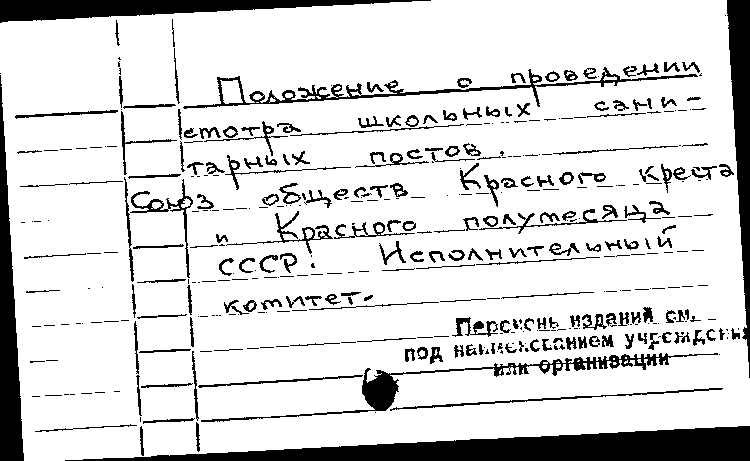 Положение о проведении
смотра школьных сани-
тарных постов.
Союз обществ Красного креста
и Красного полумесяца
СССР. Исполнительный
комитет.
Перечень изданий см.
под наименованием учреждения
или организации